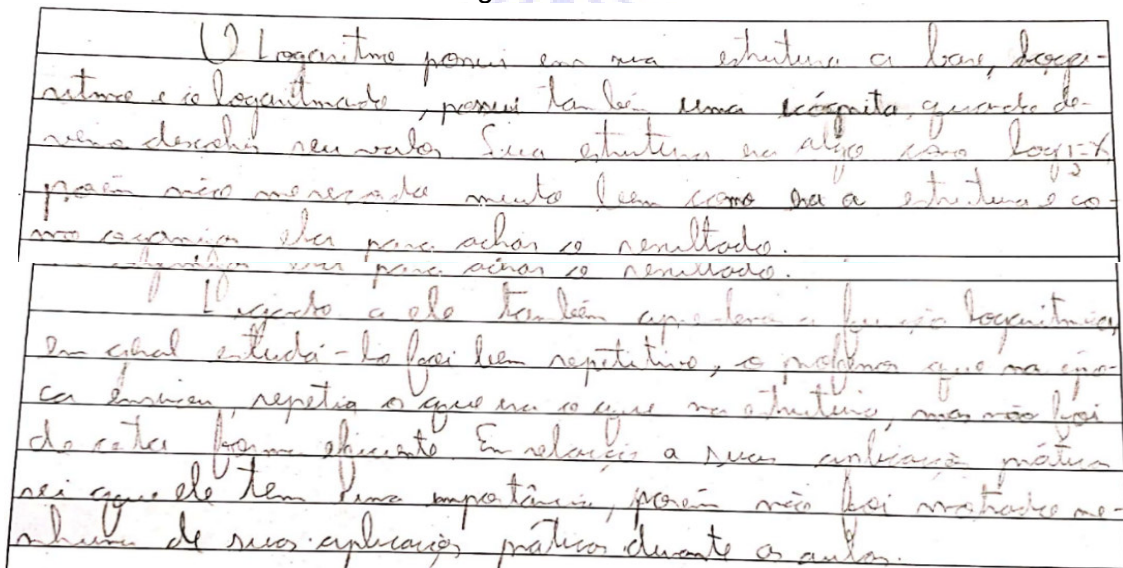 O Logaritmo possui em sua estrutura a base, loga-
ritmo e o logaritmado, possui também uma icógnita, quando de-
vemos descobrir seu valor. Sua estrutura era algo como log 1=x,
porém não me recordo muito bem como era a estrutura e co-
mo organizar ela para achar o resultado.
organizar ela para achar o resultado.
Ligado a ele também aprendemos a função logarítmica,
em geral estudá-lo foi bem repetitivo, o professor que na épo-
ca ensinou, repetia o que era o que na estrutura, mas não foi
de certa forma eficiente. Em relação a suas aplicação prática
sei que ele tem uma importância, porém não foi mostrado ne-
nhuma de suas aplicações práticas durante as aulas.